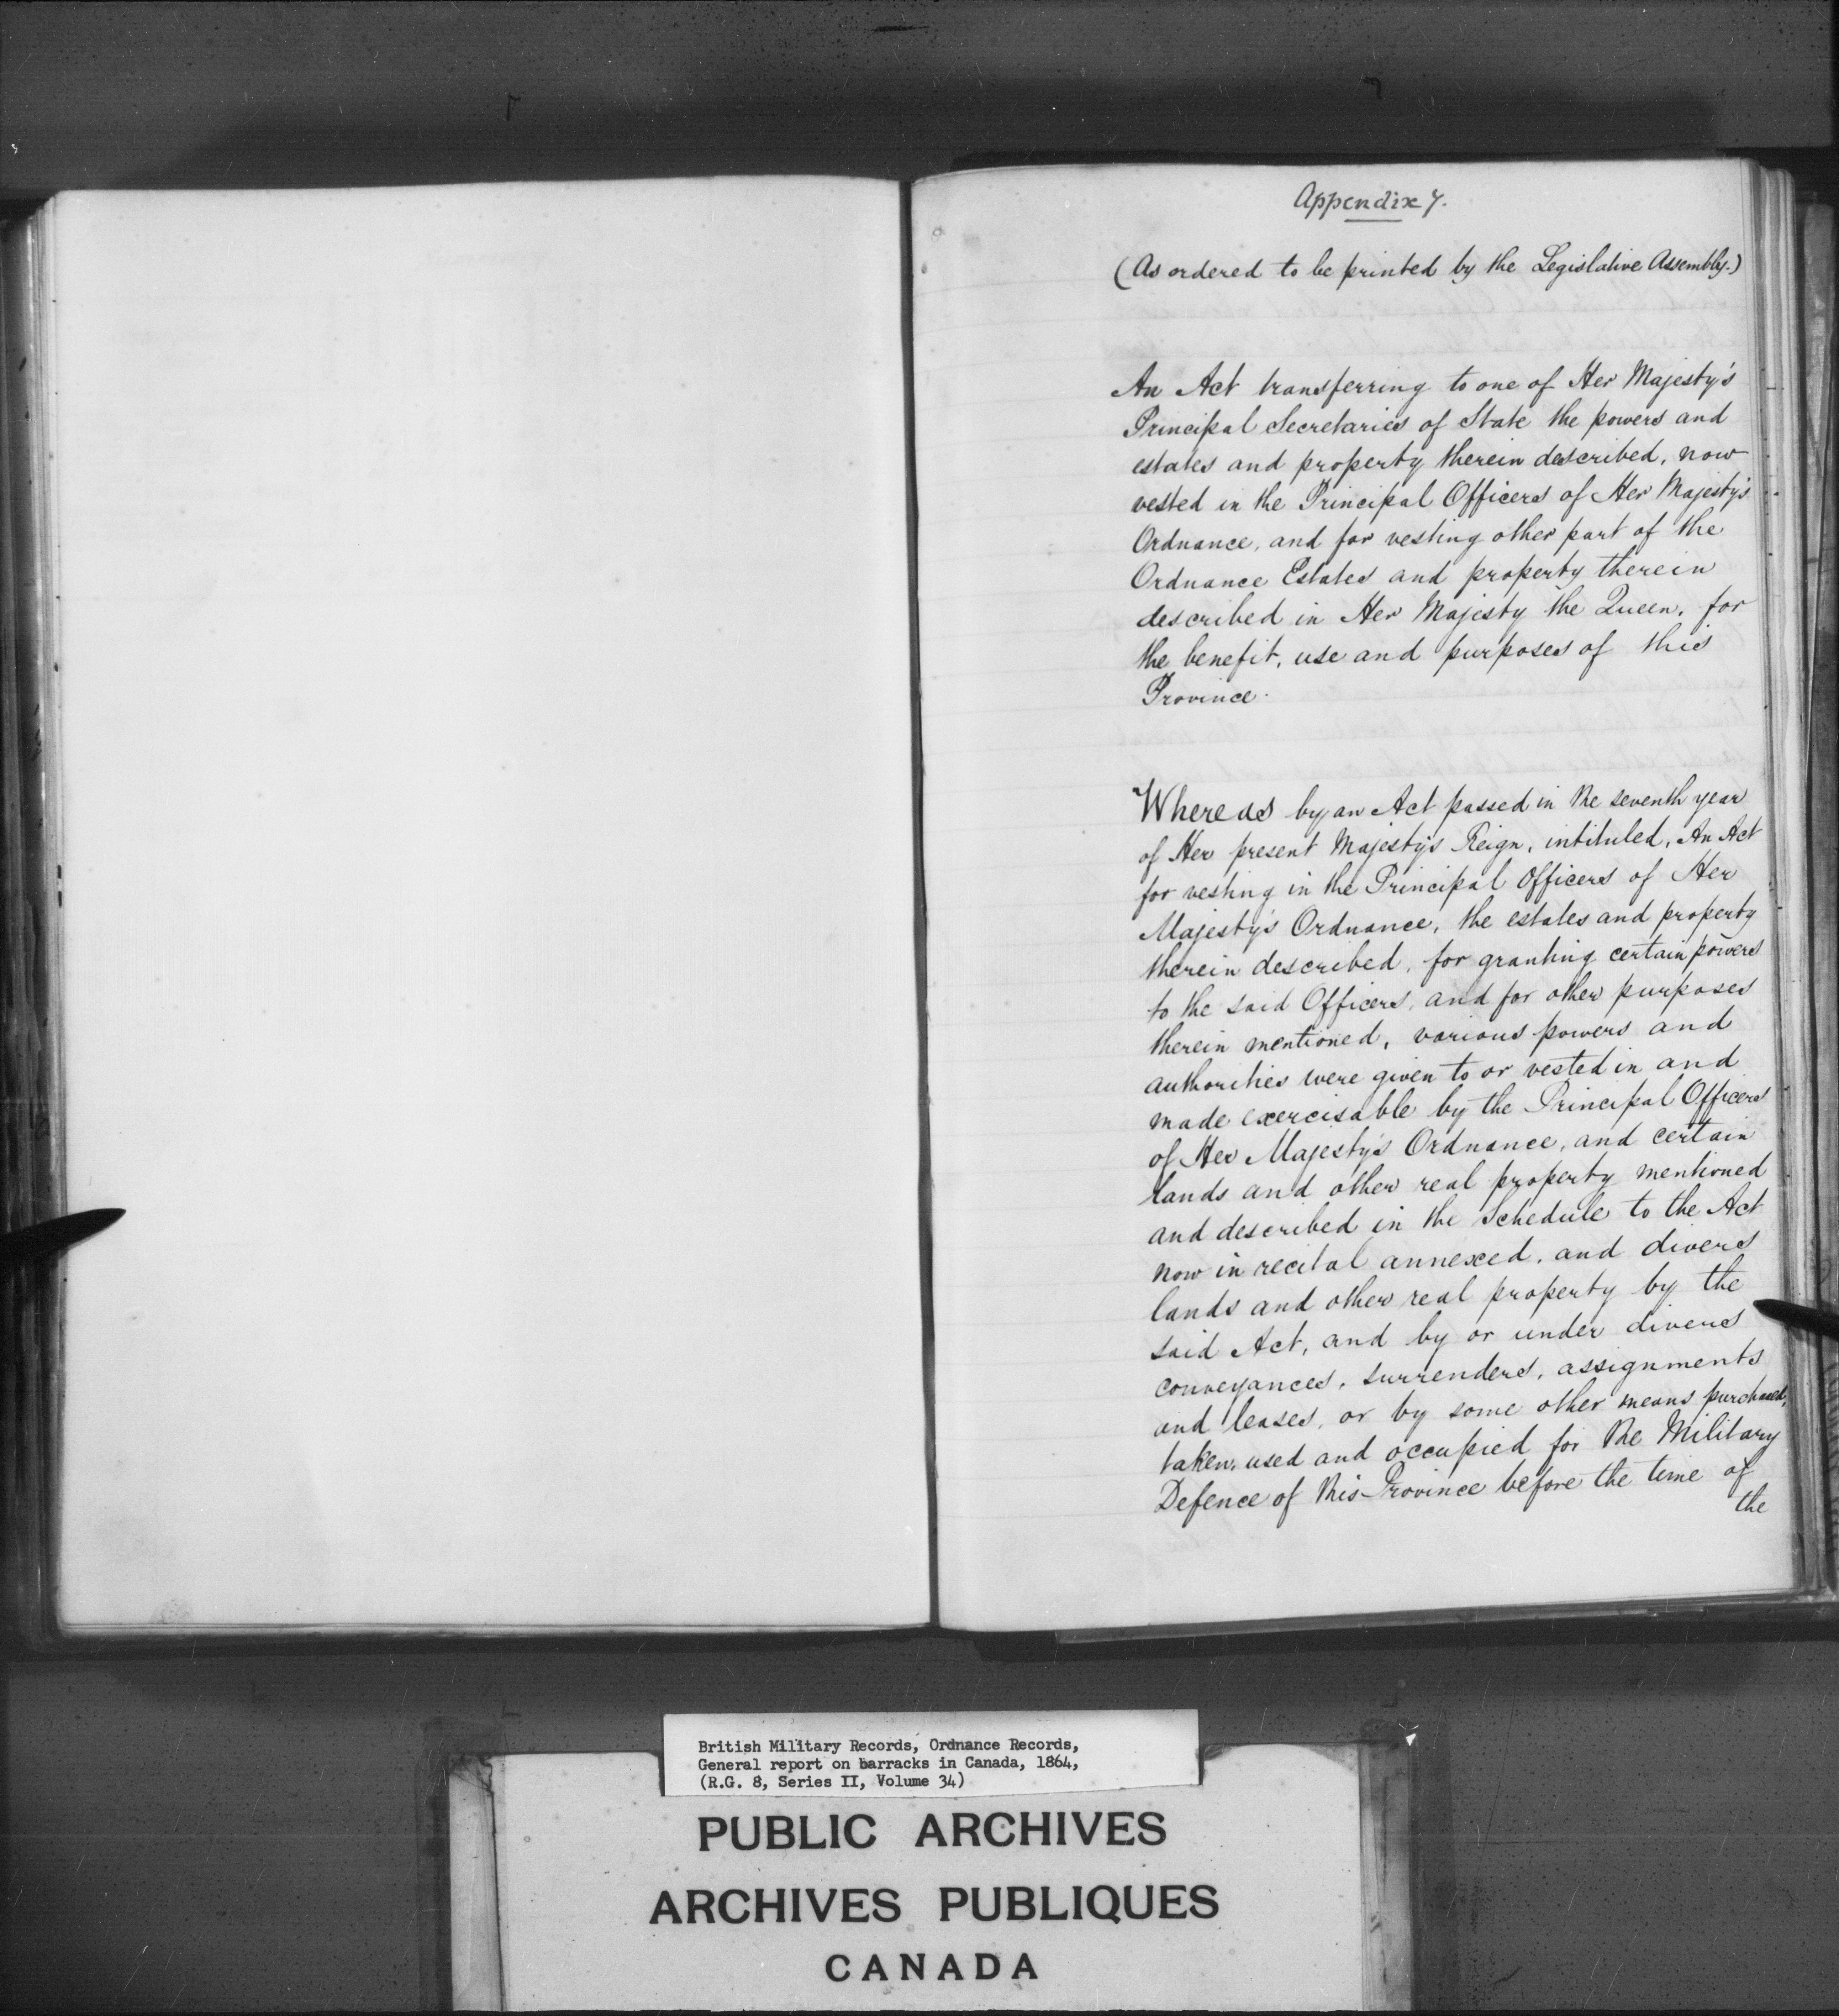 Appendix 7.
(As ordered to be printed by the Legislative Assembly.)
An Act transferring to one of Her Majesty's
Principal Secretaries of State the powers and
estates and property therein described, now
vested in the Principal Officers of Her Majesty's
Ordnance, and for vesting other part of the
Ordnance Estates and property therein
described in Her Majesty the Queen, for
the benefit, use and purposes of this
Province.
Whereas by an Act passed in the seventh year
of Her present Majesty's Reign, intituled, An Act
for vesting in the Principal Officers of Her
Majesty's Ordnance, the estates and property
therein described, for granting certain powers
to the said Officers, and for other purposes
therein mentioned, various powers and
authorities were given to or vested in and
made exercisable by the Principal Officers
of Her Majesty's Ordnance, and certain
lands and other real property mentioned
and described in the Schedule to the Act
now in recital annexed, and divers
lands and other real property by the
said Act, and by or under divers
conveyances, surrenders, assignments
and leases, or by some other means purchased,
taken, used and occupied for the Military
Defence of this Province before the time of
the
British Military Records, Ordnance Records,
General report on barracks in Canada, 1864,
(R.G. 8, Series II, Volume 34)
PUBLIC ARCHIVES
ARCHIVES PUBLIQUES
CANADA